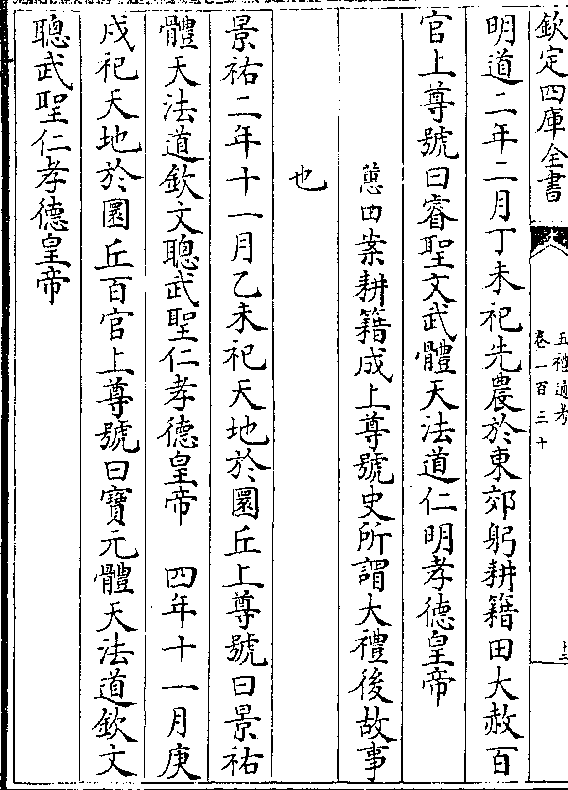 欽定四庫全書
五禮通考
卷一百三十
明道二年二月丁未祀先農於東郊躬耕籍田大赦百
官上尊號曰睿聖文武體天法道仁明孝德皇帝
蕙田案耕籍成上尊號史所謂大禮後故事
也
景祐二年十一月乙未祀天地於圜丘上尊號曰景祐
體天法道欽文聰武聖仁孝德皇帝　四年十一月庚
戌祀天地於圜丘百官上尊號曰寶元體天法道欽文
聰武聖仁孝德皇帝